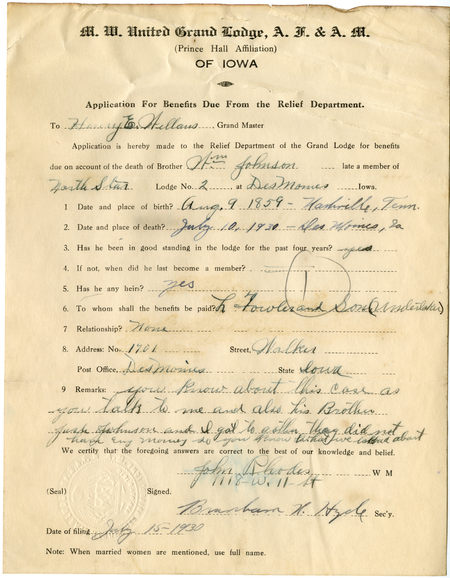 M. W. United Grand Lodge, A. F. & A. M.
(Prince Hall Affiliation)
OF IOWA
Application For Benefits Due From the Relief Department.
To Henry E. Williams, Grand Master
Application is hereby made to the Relief Department of the Grand Lodge for benefits
due on account of the death of Brother Wm Johnson late a member of
North Star Lodge No. 2 at Des Moines Iowa.
1 Date and place of birth? Aug. 9 1859 - Nashville, Tenn.
2 Date and place of death? July 10, 1930 - Des Moines, Ia
3 Has he been in good standing in the lodge for the past four years? yes
4 If not, when did he last become a member?
5 Has he any heir? yes
6 To whom shall the benefits be paid? L Fowler and Son (Undertaker)
7 Relationship? None
8 Address: No. 1701 Street, Walker
Post Office, Des Moines State Iowa
9 Remarks: you know about this case as
you talk to me and also his Brother
Johnson and I got to gather they did not
have any money so you know what we about
We certify that the foregoing answers are correct to the best of our knowledge and belief.
John Rhodes W M
1118 W. 11 St
(Seal) Signed.
Hyde Sec'y.
Date of filing July 15-1930
Note: When married women are mentioned, use full name.